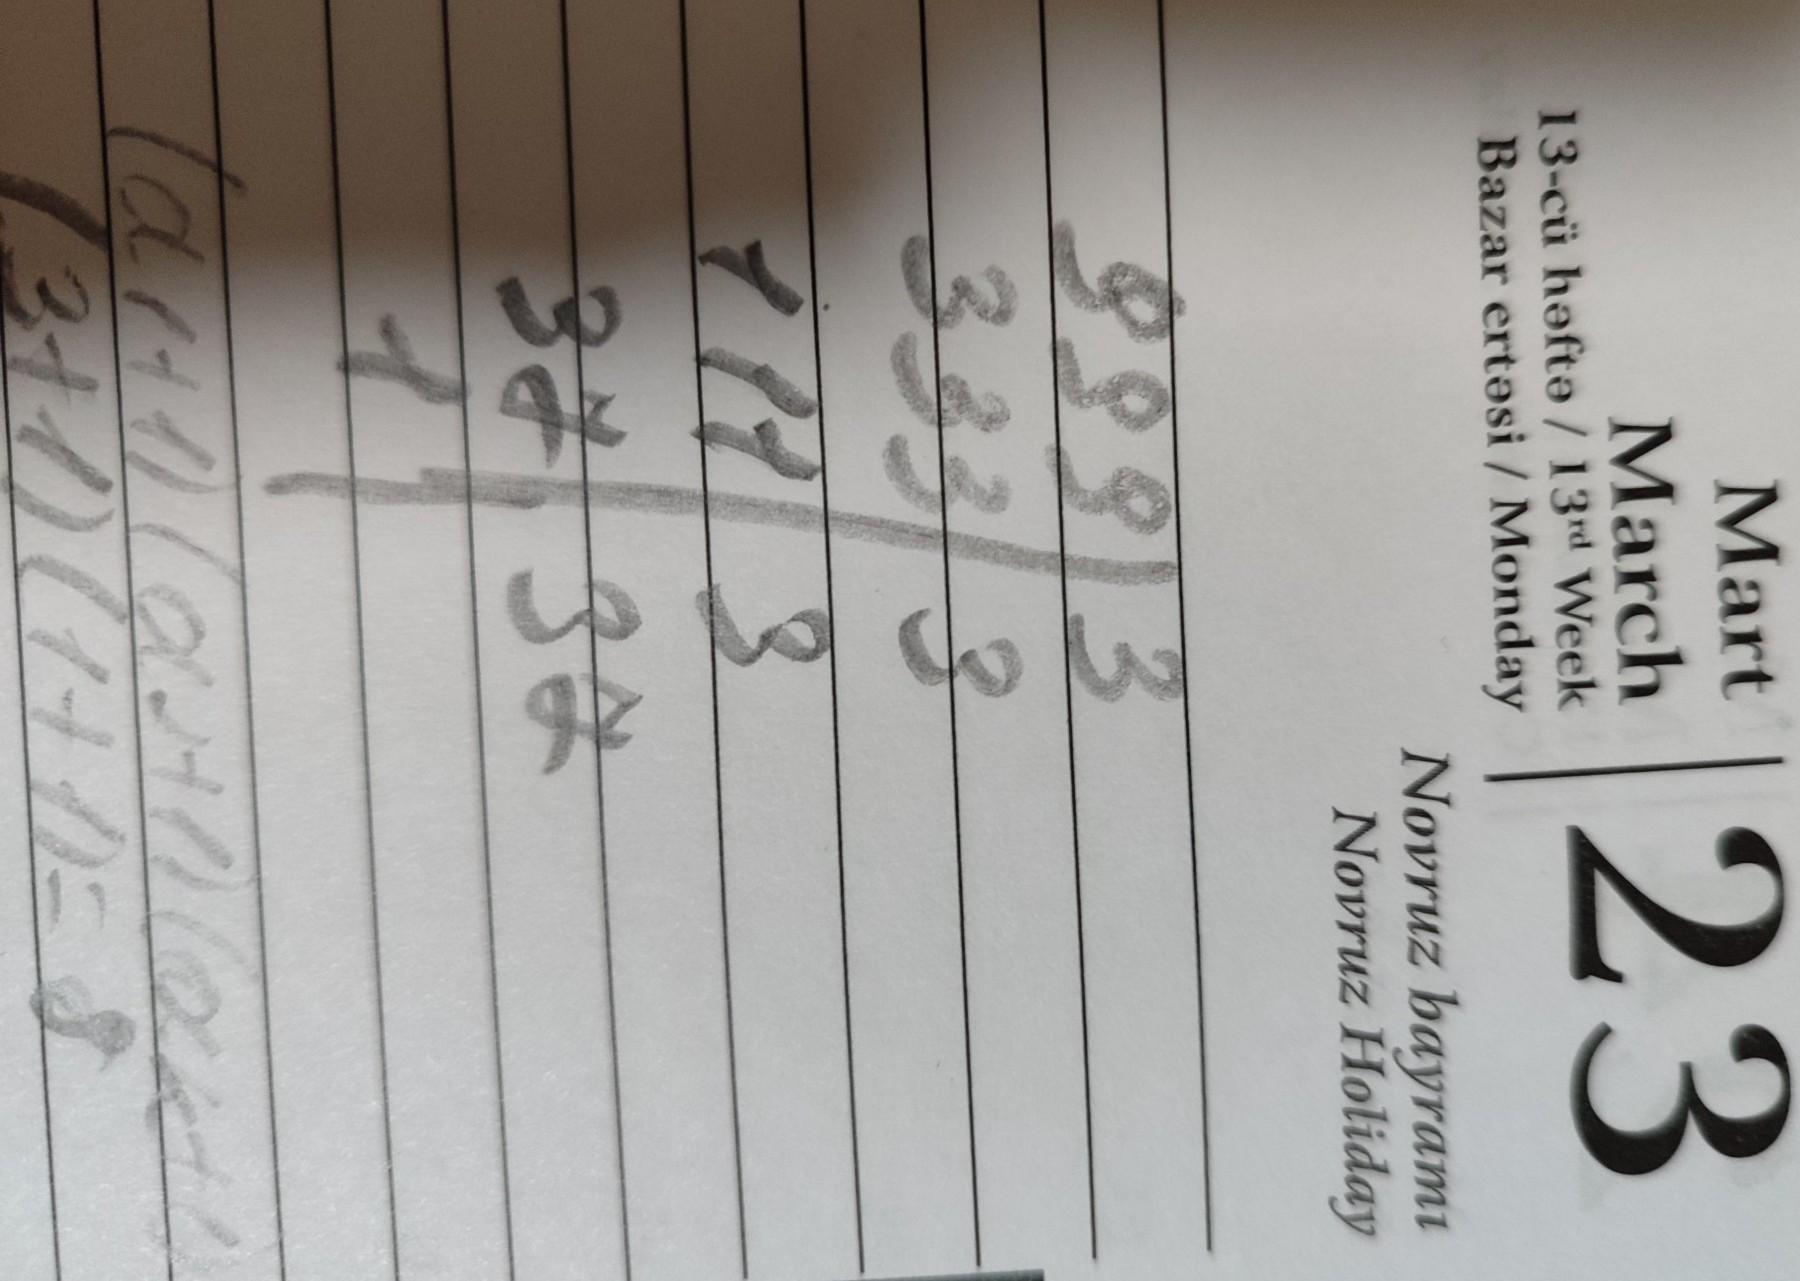 Mart
March 23
13-cü həftə / 13rd Week
Bazar ertəsi / Monday
Novruz bayramı
Novruz Holiday
999 3
333 3
111 3
37 37
1
(a1+1)(a2+1)(ak+1
(3+1)(1+1)=8